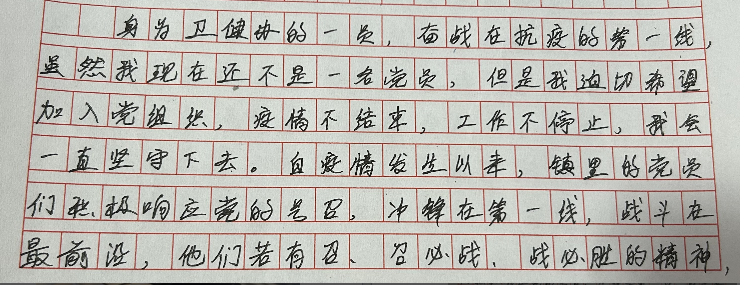 身为卫健协的一员，奋战在抗疫的第一线，
虽然我现在还不是一名党员，但是我迫切希望
加入党组织，疫情不结束，工作不停止，我会
一直坚守下去。自疫情发生以来，镇里的党员
们积极响应党的号召，冲锋在第一线，战斗在
最前沿，他们若有召、召必战、战必胜的精神，